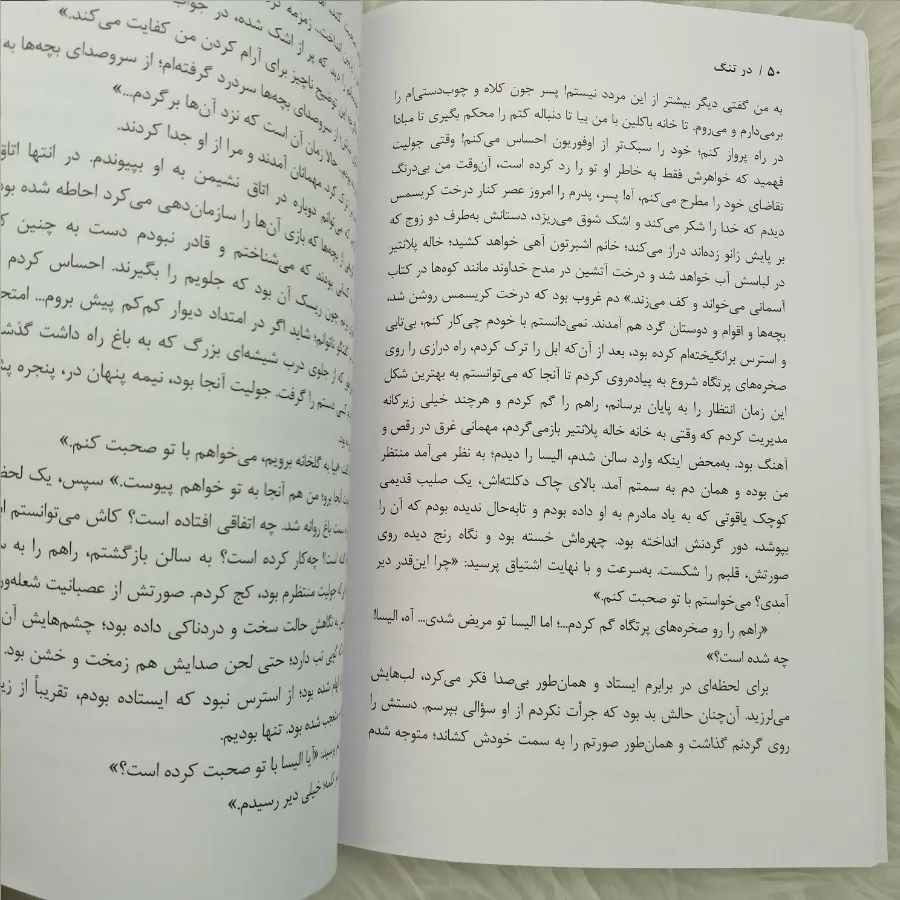 ۵۰ / در تنگ
به من گفتی دیگر بیشتر از این مردد نیستم! پسر جون کلاه و چوب‌دستی‌ام را
برمی‌دارم و می‌روم. تا خانه باکلین با من بیا تا دنباله کتم را محکم بگیری تا مبادا
در راه پرواز کنم؛ خود را سبک‌تر از اوفوریون احساس می‌کنم! وقتی جولیت
فهمید که خواهرش فقط به خاطر او تو را رد کرده است، آن‌وقت من بی‌درنگ
تقاضای خود را مطرح می‌کنم، آه! پسر، پدرم را امروز عصر کنار درخت کریسمس
دیدم که خدا را شکر می‌کند و اشک شوق می‌ریزد، دستانش به‌طرف دو زوج که
بر پایش زانو زده‌اند دراز می‌کند؛ خانم اشبرتون آهی خواهد کشید؛ خاله پلانتیر
در لباسش آب خواهد شد و درخت آتشین در مدح خداوند مانند کوه‌ها در کتاب
آسمانی می‌خواند و کف می‌زند.» دم غروب بود که درخت کریسمس روشن شد،
بچه‌ها و اقوام و دوستان گرد هم آمدند. نمی‌دانستم با خودم چی‌کار کنم، بی‌تابی
و استرس برانگیخته‌ام کرده بود، بعد از آن‌که ابل را ترک کردم، راه درازی را روی
صخره‌های پرتگاه شروع به پیاده‌روی کردم تا آنجا که می‌توانستم به بهترین شکل
این زمان انتظار را به پایان برسانم، راهم را گم کردم و هرچند خیلی زیرکانه
مدیریت کردم که وقتی به خانه خاله پلانتیر بازمی‌گردم، مهمانی غرق در رقص و
آهنگ بود. به‌محض اینکه وارد سالن شدم، الیسا را دیدم؛ به نظر می‌آمد منتظر
من بوده و همان دم به سمتم آمد. بالای چاک دکلته‌اش، یک صلیب قدیمی
کوچک یاقوتی که به یاد مادرم به او داده بودم و تابه‌حال ندیده بودم که آن را
بپوشد، دور گردنش انداخته بود. چهره‌اش خسته بود و نگاه رنج دیده روی
صورتش، قلبم را شکست. به‌سرعت و با نهایت اشتیاق پرسید: «چرا این‌قدر دیر
آمدی؟ می‌خواستم با تو صحبت کنم.»
«راهم را رو صخره‌های پرتگاه گم کردم...؛ اما الیسا تو مریض شدی... آه، الیسا!
چه شده است؟»
برای لحظه‌ای در برابرم ایستاد و همان‌طور بی‌صدا فکر می‌کرد، لب‌هایش
می‌لرزید. آن‌چنان حالش بد بود که جرأت نکردم از او سؤالی بپرسم. دستش را
روی گردنم گذاشت و همان‌طور صورتم را به سمت خودش کشاند؛ متوجه شدم
انداخت... زمزمه
دید که پر از اشک شده، در جواب
این توضیح ناچیز برای آرام کردن من کفایت می‌کند.»
از سروصدای بچه‌ها سردرد گرفته‌ام؛ از سروصدای بچه‌ها به
حالا زمان آن است که نزد آن‌ها برگردم...»
ترک کرد. مهمانان آمدند و مرا از او جدا کردند.
که می‌توانم دوباره در اتاق نشیمن به او بپیوندم. در انتها اتاق
از بچه‌ها که بازی آن‌ها را سازمان‌دهی می‌کرد احاطه شده بود
بودند که می‌شناختم و قادر نبودم دست به چنین
چون ریسک آن بود که جلویم را بگیرند. احساس کردم
شاید اگر در امتداد دیوار کم‌کم پیش بروم... امتحا
که از جلوی درب شیشه‌ای بزرگ که به باغ راه داشت گذشتم
دستم را گرفت. جولیت آنجا بود، نیمه پنهان در، پنجره
بود.
به گلخانه برویم، می‌خواهم با تو صحبت کنم.»
آنجا برو؛ من هم آنجا به تو خواهم پیوست.» سپس، یک لحظ
باغ روانه شد. چه اتفاقی افتاده است؟ کاش می‌توانستم
است؟ چه‌کار کرده است؟ به سالن بازگشتم، راهم را به
جولیت منتظرم بود، کج کردم. صورتش از عصبانیت شعله‌ور
نگاهش حالت سخت و دردناکی داده بود؛ چشم‌هایش آن
تب دارد؛ حتی لحن صدایش هم زمخت و خشن بود.
شده بود؛ از استرس نبود که ایستاده بودم، تقریباً از
شده بود. تنها بودیم.
«آیا الیسا با تو صحبت کرده است؟»
خیلی دیر رسیدم.»